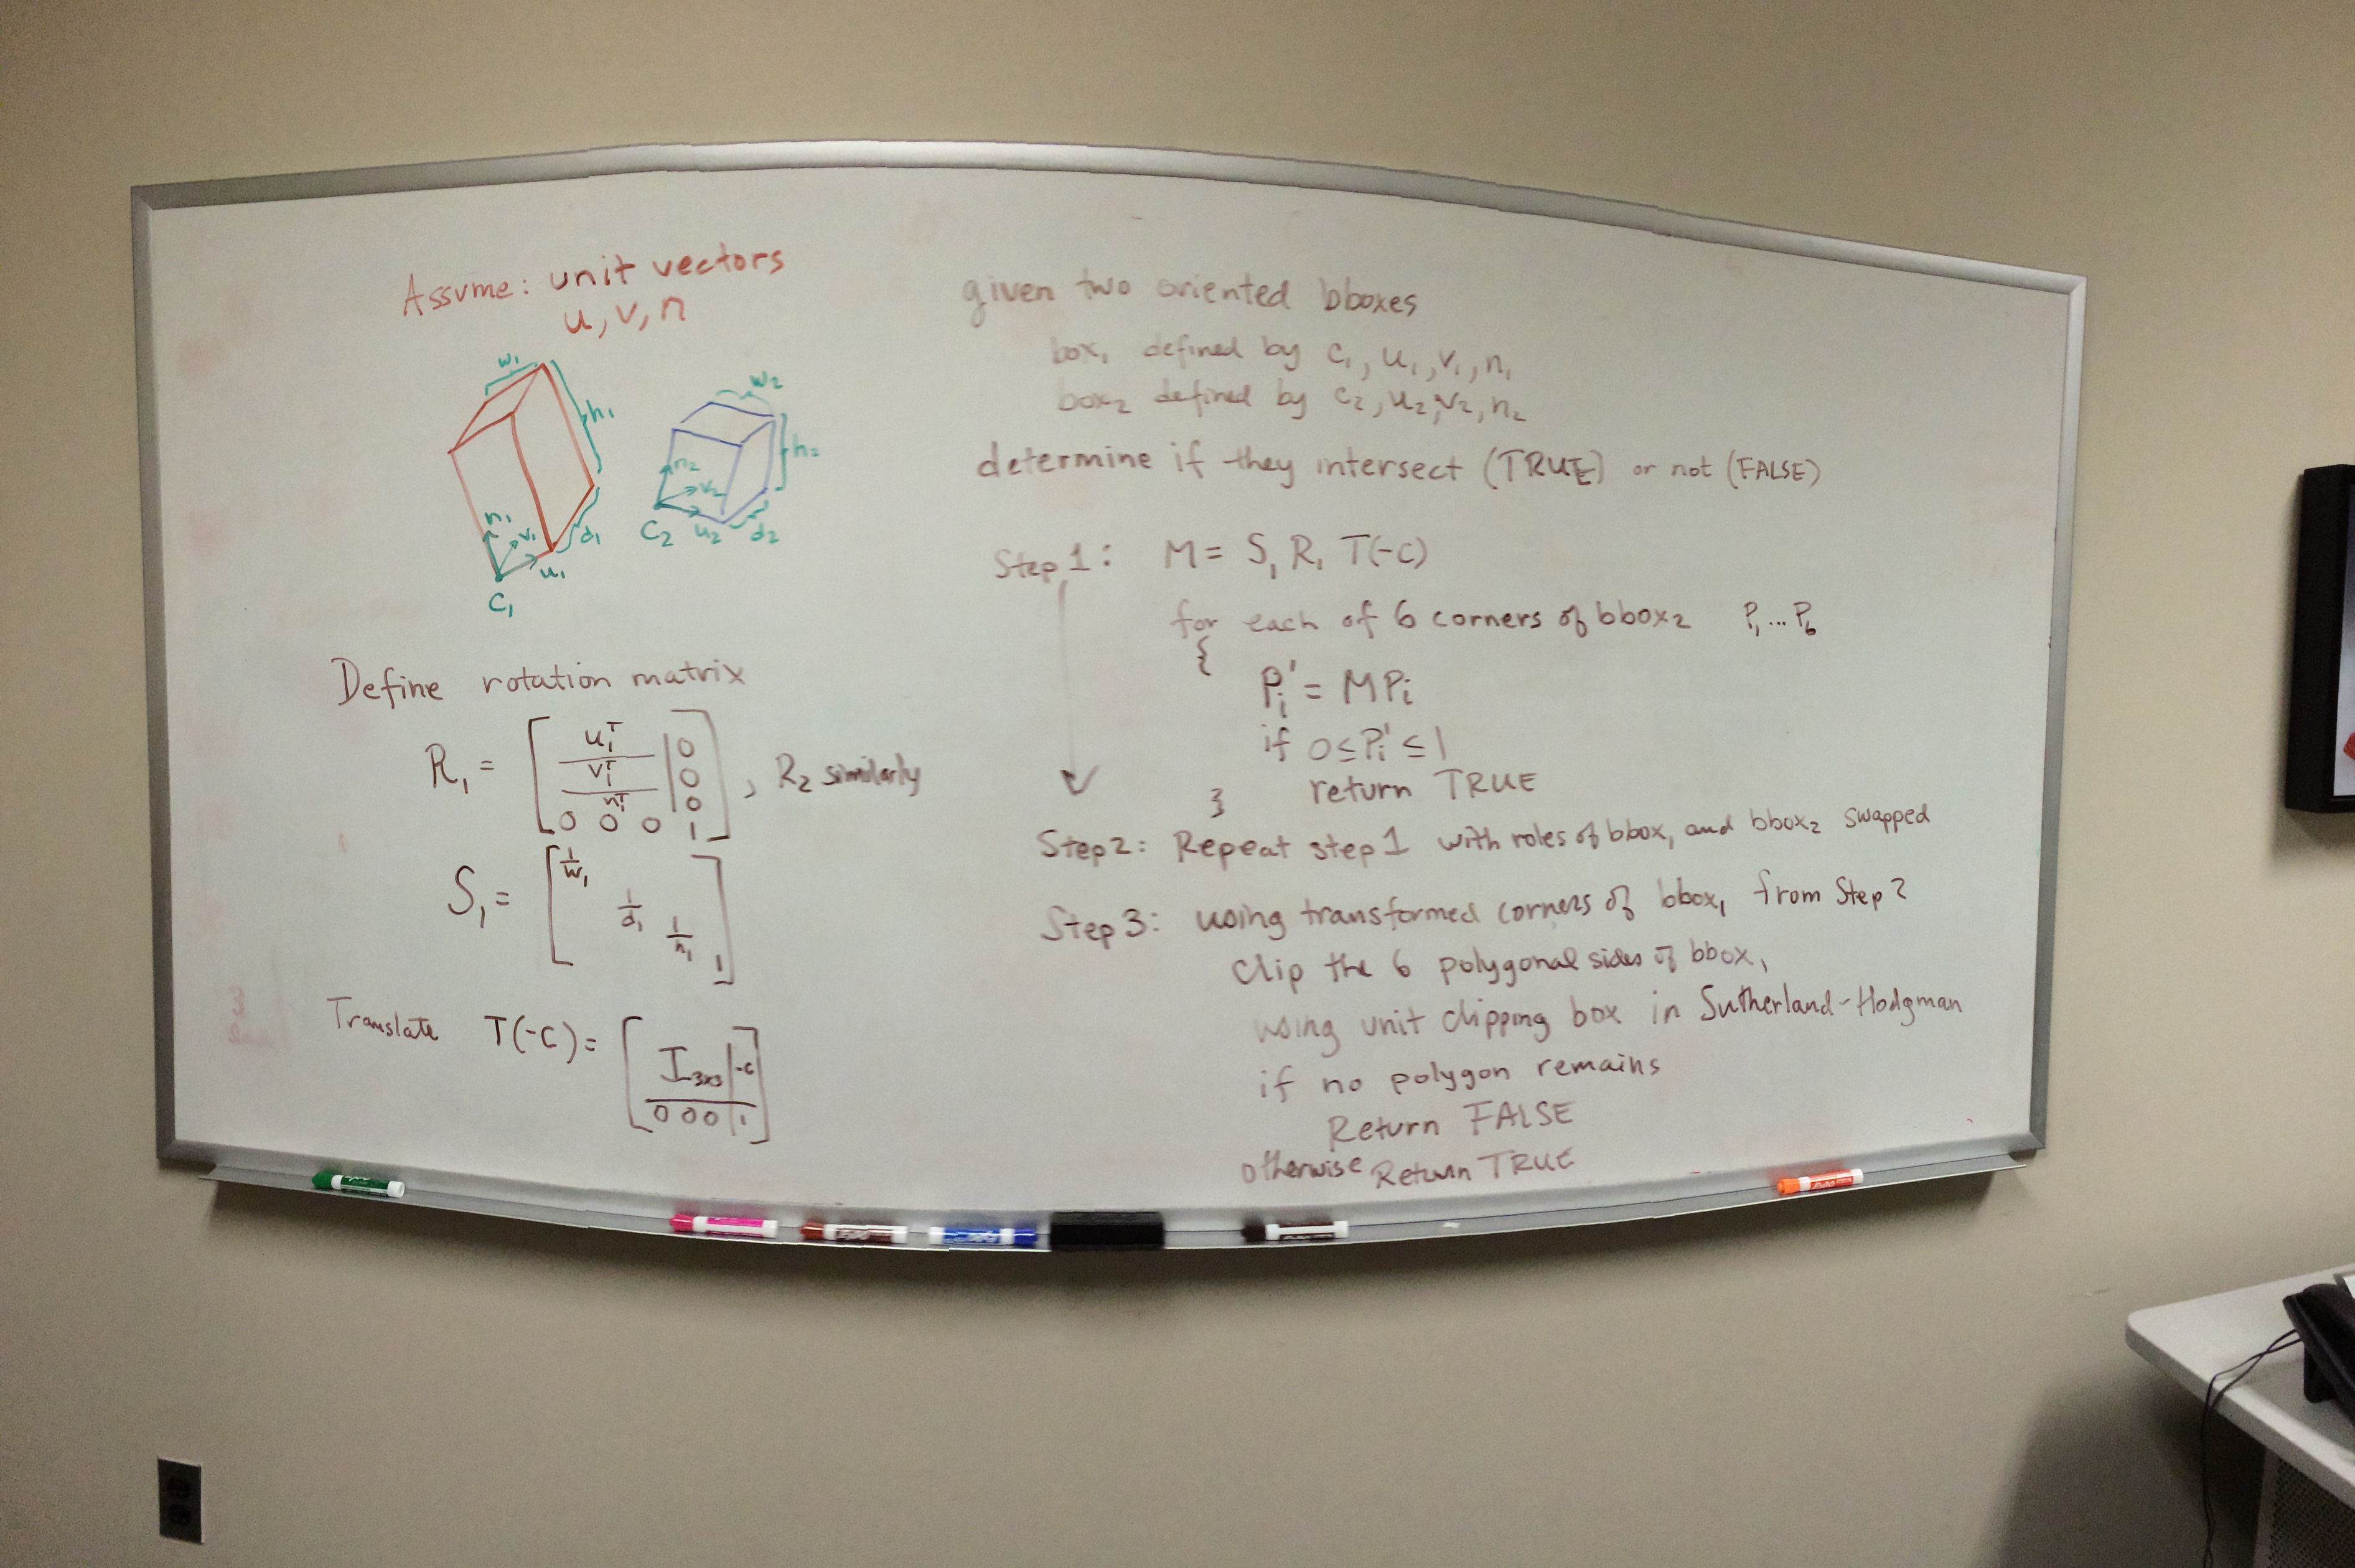 Assume: unit vectors
u, v, n
w₁
h₁
d₁
n₁
v₁
u₁
C₁
w₂
h₂
n₂
v₂
C₂
u₂
d₂
Define rotation matrix
R₁ = [ u₁ᵀ | 0
v₁ᵀ | 0
n₁ᵀ | 0
0 0 0 1 ] , R₂ similarly
S₁ = [ 1/w₁
1/d₁
1/h₁
1 ]
Translate T(-C) = [ I₃ₓ₃ | -c
0 0 0 | 1 ]
given two oriented bboxes
box₁ defined by C₁, u₁, v₁, n₁
box₂ defined by C₂, u₂, v₂, n₂
determine if they intersect (TRUE) or not (FALSE)
Step 1: M = S₁ R₁ T(-C)
for each of 6 corners of bbox₂ P₁ ... P₆
{
Pᵢ' = M Pᵢ
if 0 ≤ Pᵢ' ≤ 1
return TRUE
}
Step 2: Repeat step 1 with roles of bbox₁ and bbox₂ swapped
Step 3: using transformed corners of bbox₁ from Step 2
Clip the 6 polygonal sides of bbox₁
using unit clipping box in Sutherland-Hodgman
if no polygon remains
Return FALSE
otherwise Return TRUE